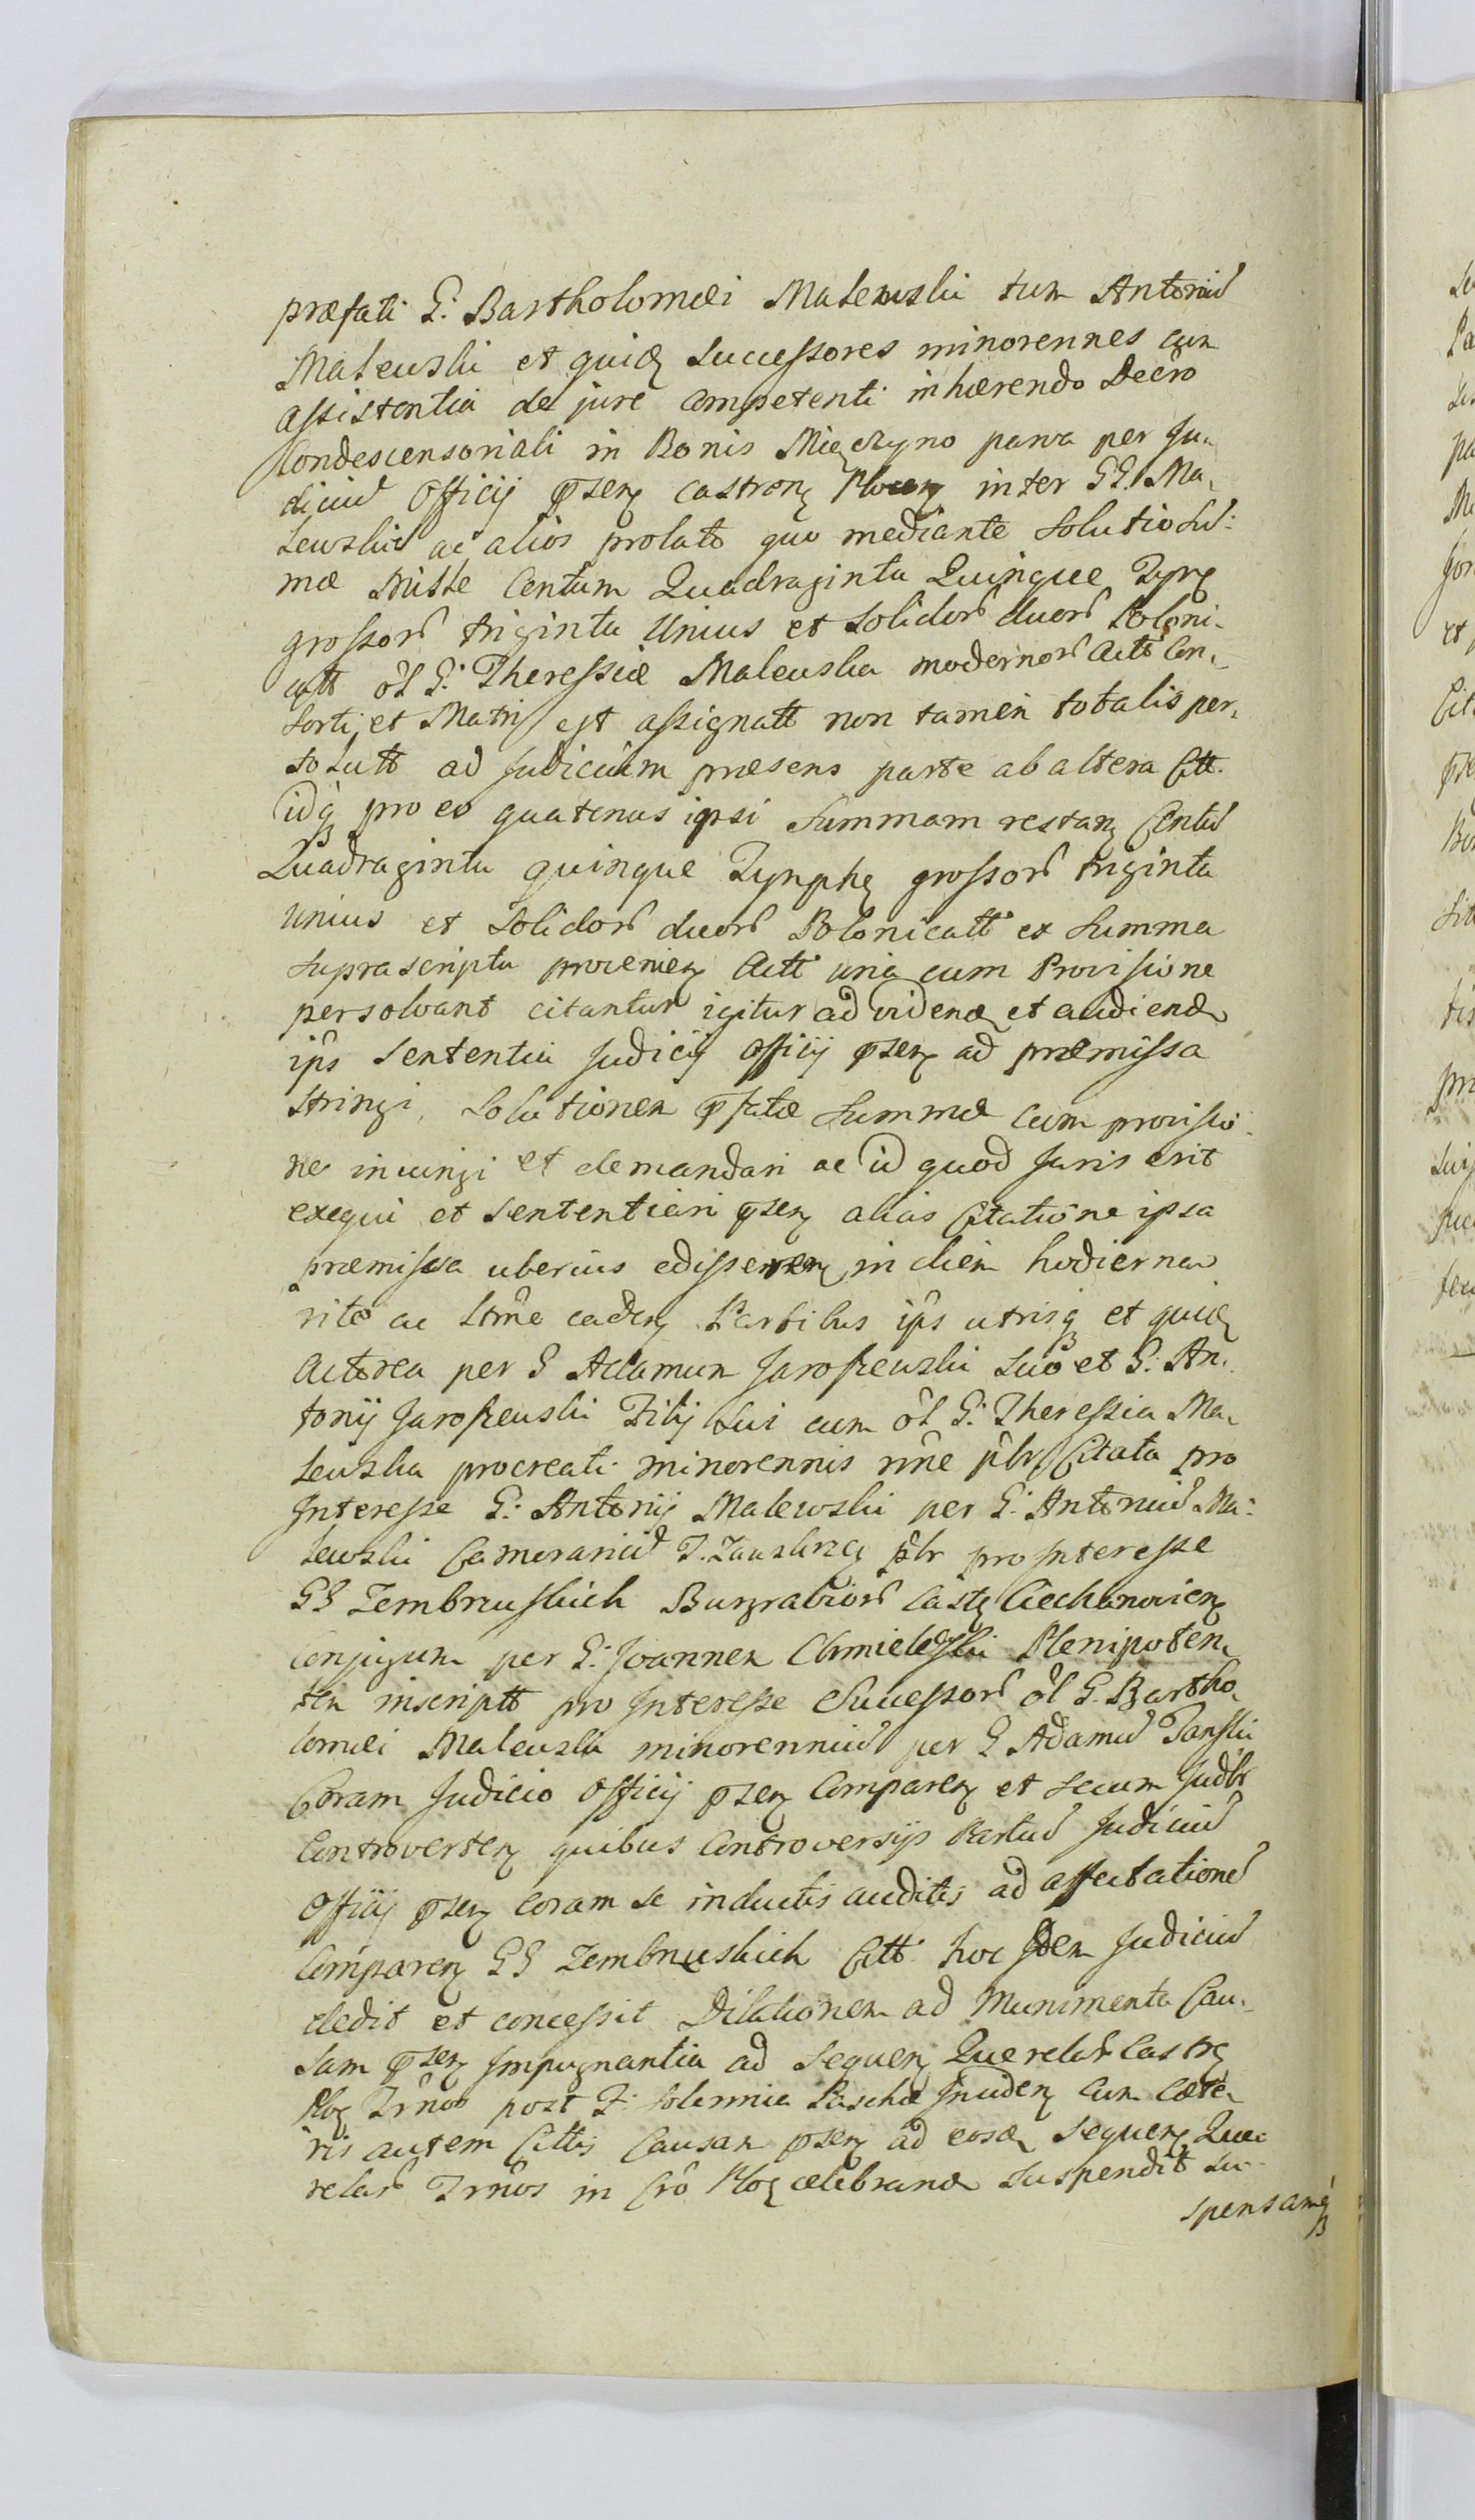 præfati G: Bartholomæi Malewski tum Antoniu
Malewski et quidę Successores minorennes cum
assistentia de jure competenti inhærendo Decro
Condescensoriali in Bonis Mięczyno parva per Ju-
diciu Officij pserę castrenę Plocenę inter GG. Ma-
lewskie ac alios prolato quo mediante Solutio Su-
mæ Mille Centum Quadraginta Quinque Tympę
grossor triginta Unius et Solidor duor Poloni-
catt ol G: Theressiæ Malewska modernor Actt Con-
sorti et Matri est assignatt non tamen totalis per-
solutt ad Judicium præsens parte ab altera Citt.
idq pro eo quatenus ipsi Summam restanę Centu
Quadraginta quinque Tymphę grossor triginta
unius et Solidor duor Polonicatt ex Summa
Suprascripta provenienę Actt una cum Provisione
persolvant citantur igitur ad videnđ et audienđ
ips Sententia Judicij Officij pserę ad præmissa
stringi Solutionem pfatæ Summæ cum provisio-
ne iniungi et demandari ac id quod Juris erit
exequi et Sententiari pserę alias Citatione ipsa
præmissa uberius edisserenę in diem hodierna
rite ac ltme cadenę Partibus ips utrisq et quidę
Actorea per G Adamum Jaroszewski Suo et G: An-
tonij Jaroszewski Filij Sui cum ol G: Theressia Ma-
lewska procreati minorennis nne plr Citata pro
Interesse G: Antonij Malewski per G: Antoniu Ma-
lewski Camerariu T. Zauskrzę plr pro Interesse
GG Zembrzuskich Burgrabior Castę Ciechanovienę
conjugum per G: Joannem Chmielewski Plenipoten-
tem inscriptt pro Interesse Successor ol G. Bartho-
lomæi Malewski minorenniu per G Adamu Tański
Coram Judicio Officij pserę Comparenę et Secum Judlr
Controvertenę quibus Controversijs Partiu Judiciu
Officij pserę coram se inductis auditis ad affectatione
Comparenę GG Zembrzuskich Citt hoc Idem Judiciu
dedit et concessit Dilationem ad Munimenta Cau-
sam pserę Impugnantia ad Sequenę Querelar Castrę
Ploę Trnos post F: Solemnia Paschæ Inidenę cum cæte-
ris autem Cittis Causam pserę ad eosđ Sequenę Que-
relar Trnos in Cro Ploę celebranđ Suspendit Su-
spensamq